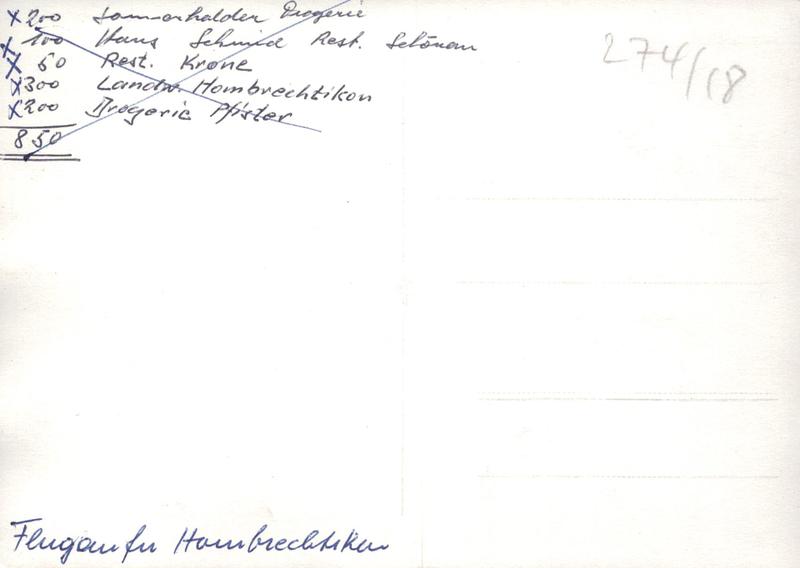 x 200 Sommerhalder Drogerie
x 100 Hans Schmid Rest. Schönau
x 50 Rest. Krone
x 300 Landw. Hombrechtikon
x 200 Drogerie Pfister
850
274/18
Flugaufn Hombrechtikon